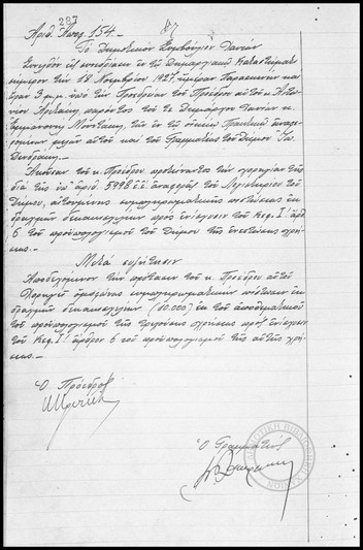 287
Αριθ. Αποφ. 154.
Το Δημοτικόν Συμβούλιον Χανίων
Συνελθόν εις συνεδρίασιν εν τω Δημαρχιακώ Καταστήματι
σήμερον την 18 Νοεμβρίου 1927, ημέραν Παρασκευήν και
ώραν 9 μ.μ. υπό την Προεδρίαν του Προέδρου αυτού κ.
παρόντος του τε Δημάρχου Χανίων κ.
Εμμανουήλ Μουντάκη, των εν τω οικείω Πρακτικώ αναφε-
ρομένων μελών αυτού και του Γραμματέως του Δήμου Ιω.
Ακούσαν του κ. Προέδρου προτείναντος την χορήγησιν της
δια της υπ' αριθ. 5998 ε.έ. αναφοράς του Λογιστηρίου του
Δήμου, αιτουμένης συμπληρωματικής πιστώσεως εκ
δραχμών δεκακισχιλίων προς ενίσχυσιν του Κεφ. Ι' άρθ.
6 του προϋπολογισμού του Δήμου της ενεστώσης χρήσε-
ως.
Μετά συζήτησιν
Αποδεχόμενον την πρότασιν του κ. Προέδρου αυτού
Χορηγεί ομοφώνως συμπληρωματικήν πίστωσιν εκ
δραχμών δεκακισχιλίων (10.000) εκ του αποθεματικού
του προϋπολογισμού της τρεχούσης χρήσεως προς ενίσχυσιν
του Κεφ. Ι' άρθρου 6 του προϋπολογισμού της αυτής χρή-
σεως.
Ο Πρόεδρος
Ο Γραμματεύς